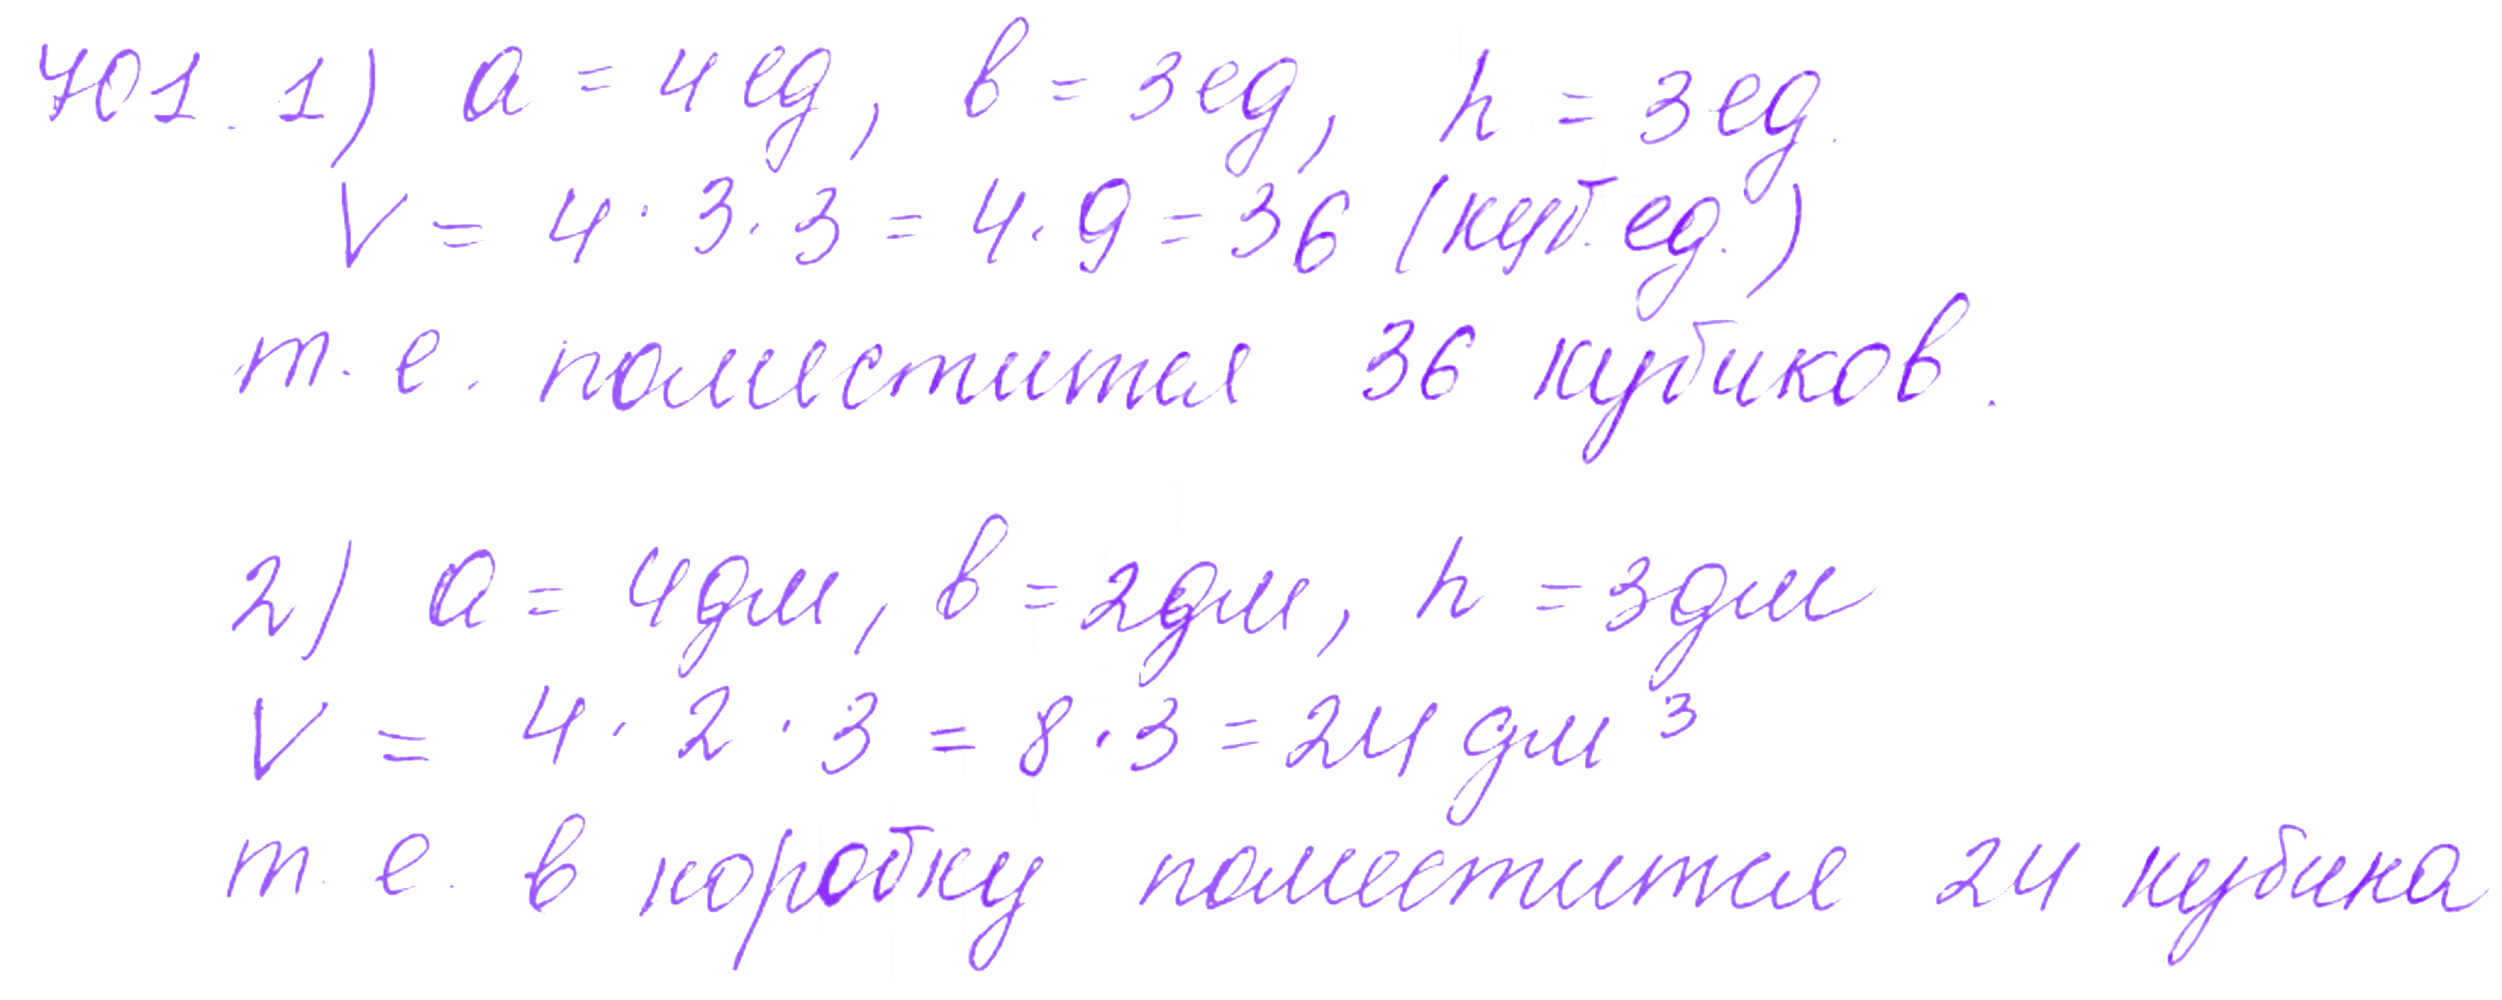 401. 1) a = 4 ед, b = 3 ед, h = 3 ед.
V = 4 · 3 · 3 = 4 · 9 = 36 (куб. ед.)
т. е. поместится 36 кубиков.
2) a = 4 дм, b = 2 дм, h = 3 дм
V = 4 · 2 · 3 = 8 · 3 = 24 дм³
т. е. в коробку поместится 24 кубика